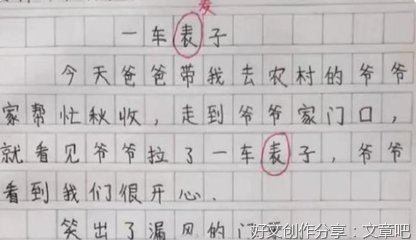 麦
一车表子
今天爸爸带我去农村的爷爷
家帮忙秋收,走到爷爷家门口,
就看见爷爷拉了一车表子,爷爷
看到我们很开心.
笑出了漏风的门
好文创作分享:文章吧